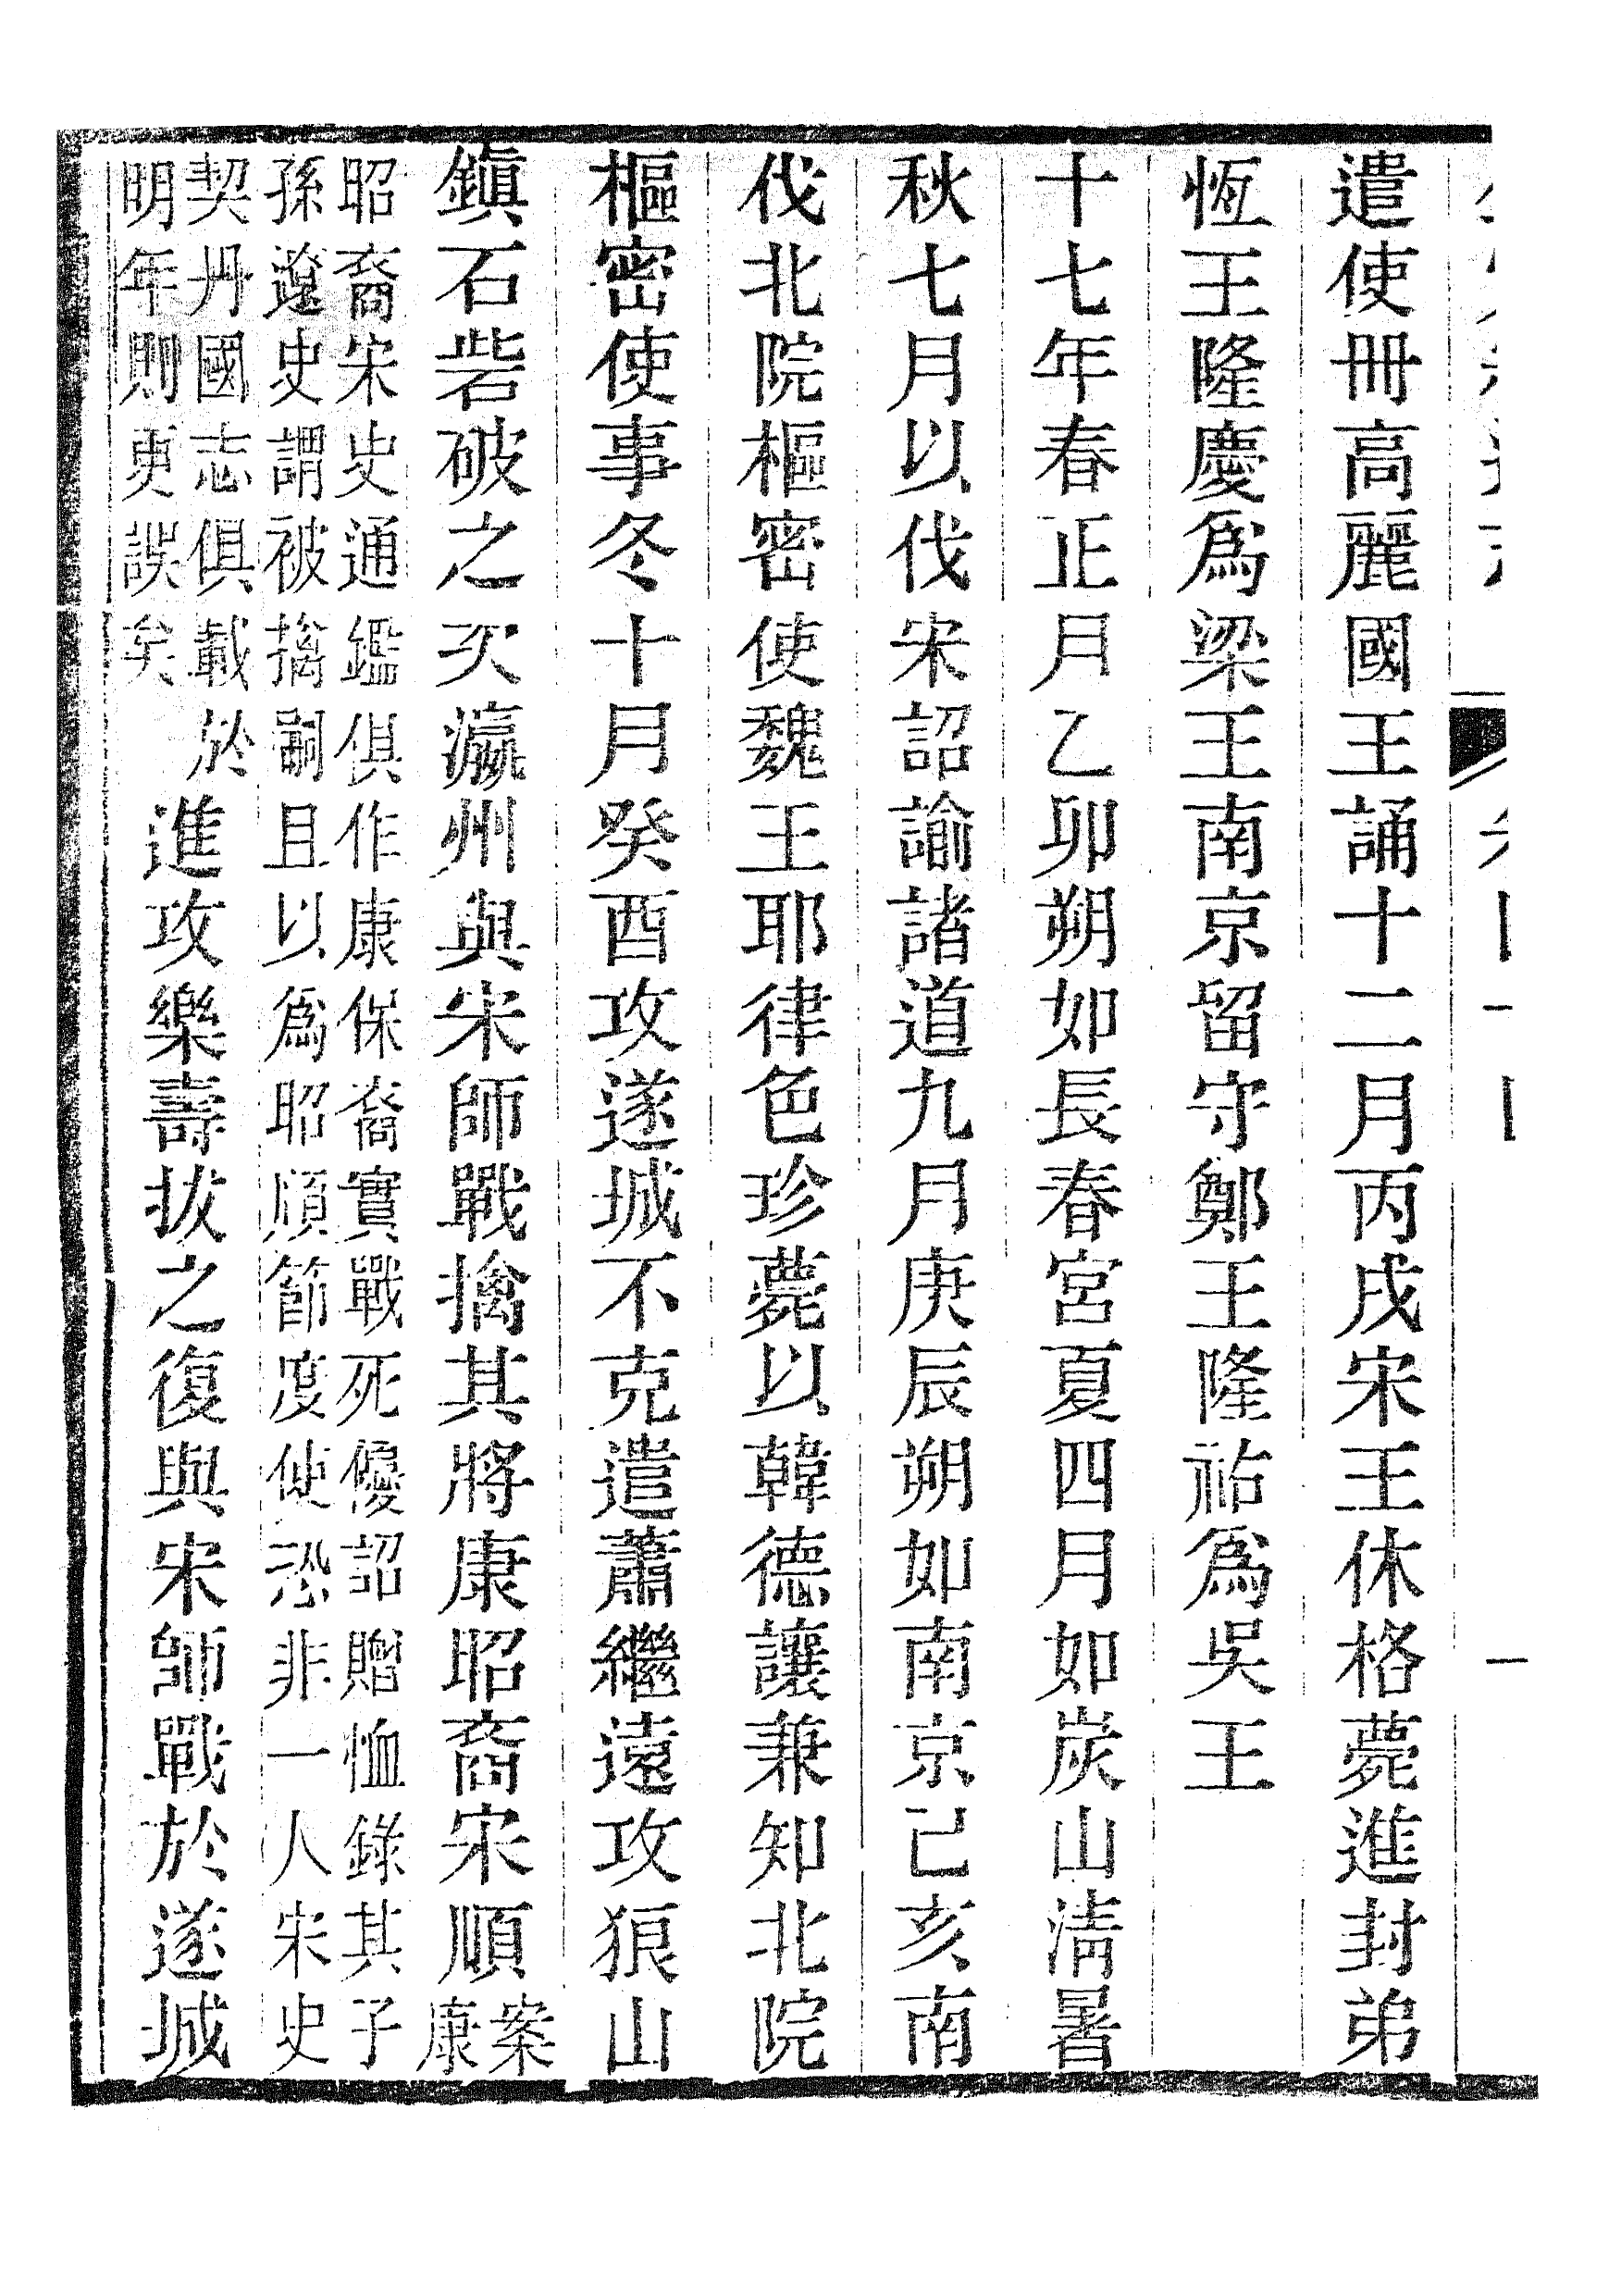 遣使冊高麗國王誦十二月丙戌宋王休格薨進封弟
恆王隆慶爲梁王南京留守鄭王隆祐爲吳王
十七年春正月乙卯朔如長春宮夏四月如炭山淸暑
秋七月以伐宋詔諭諸道九月庚辰朔如南京己亥南
伐北院樞密使魏王耶律色珍薨以韓德讓兼知北院
樞密使事冬十月癸酉攻遂城不克遣蕭繼遠攻狼山
鎭石砦破之次瀛州與宋師戰擒其將康昭裔宋順
案
康
昭裔宋史通鑑俱作康保裔實戰死優詔贈恤錄其子
孫遼史謂被擒嗣且以爲昭順節度使恐非一人宋史
契丹國志俱載於
明年則更誤矣
進攻樂壽拔之復與宋師戰於遂城